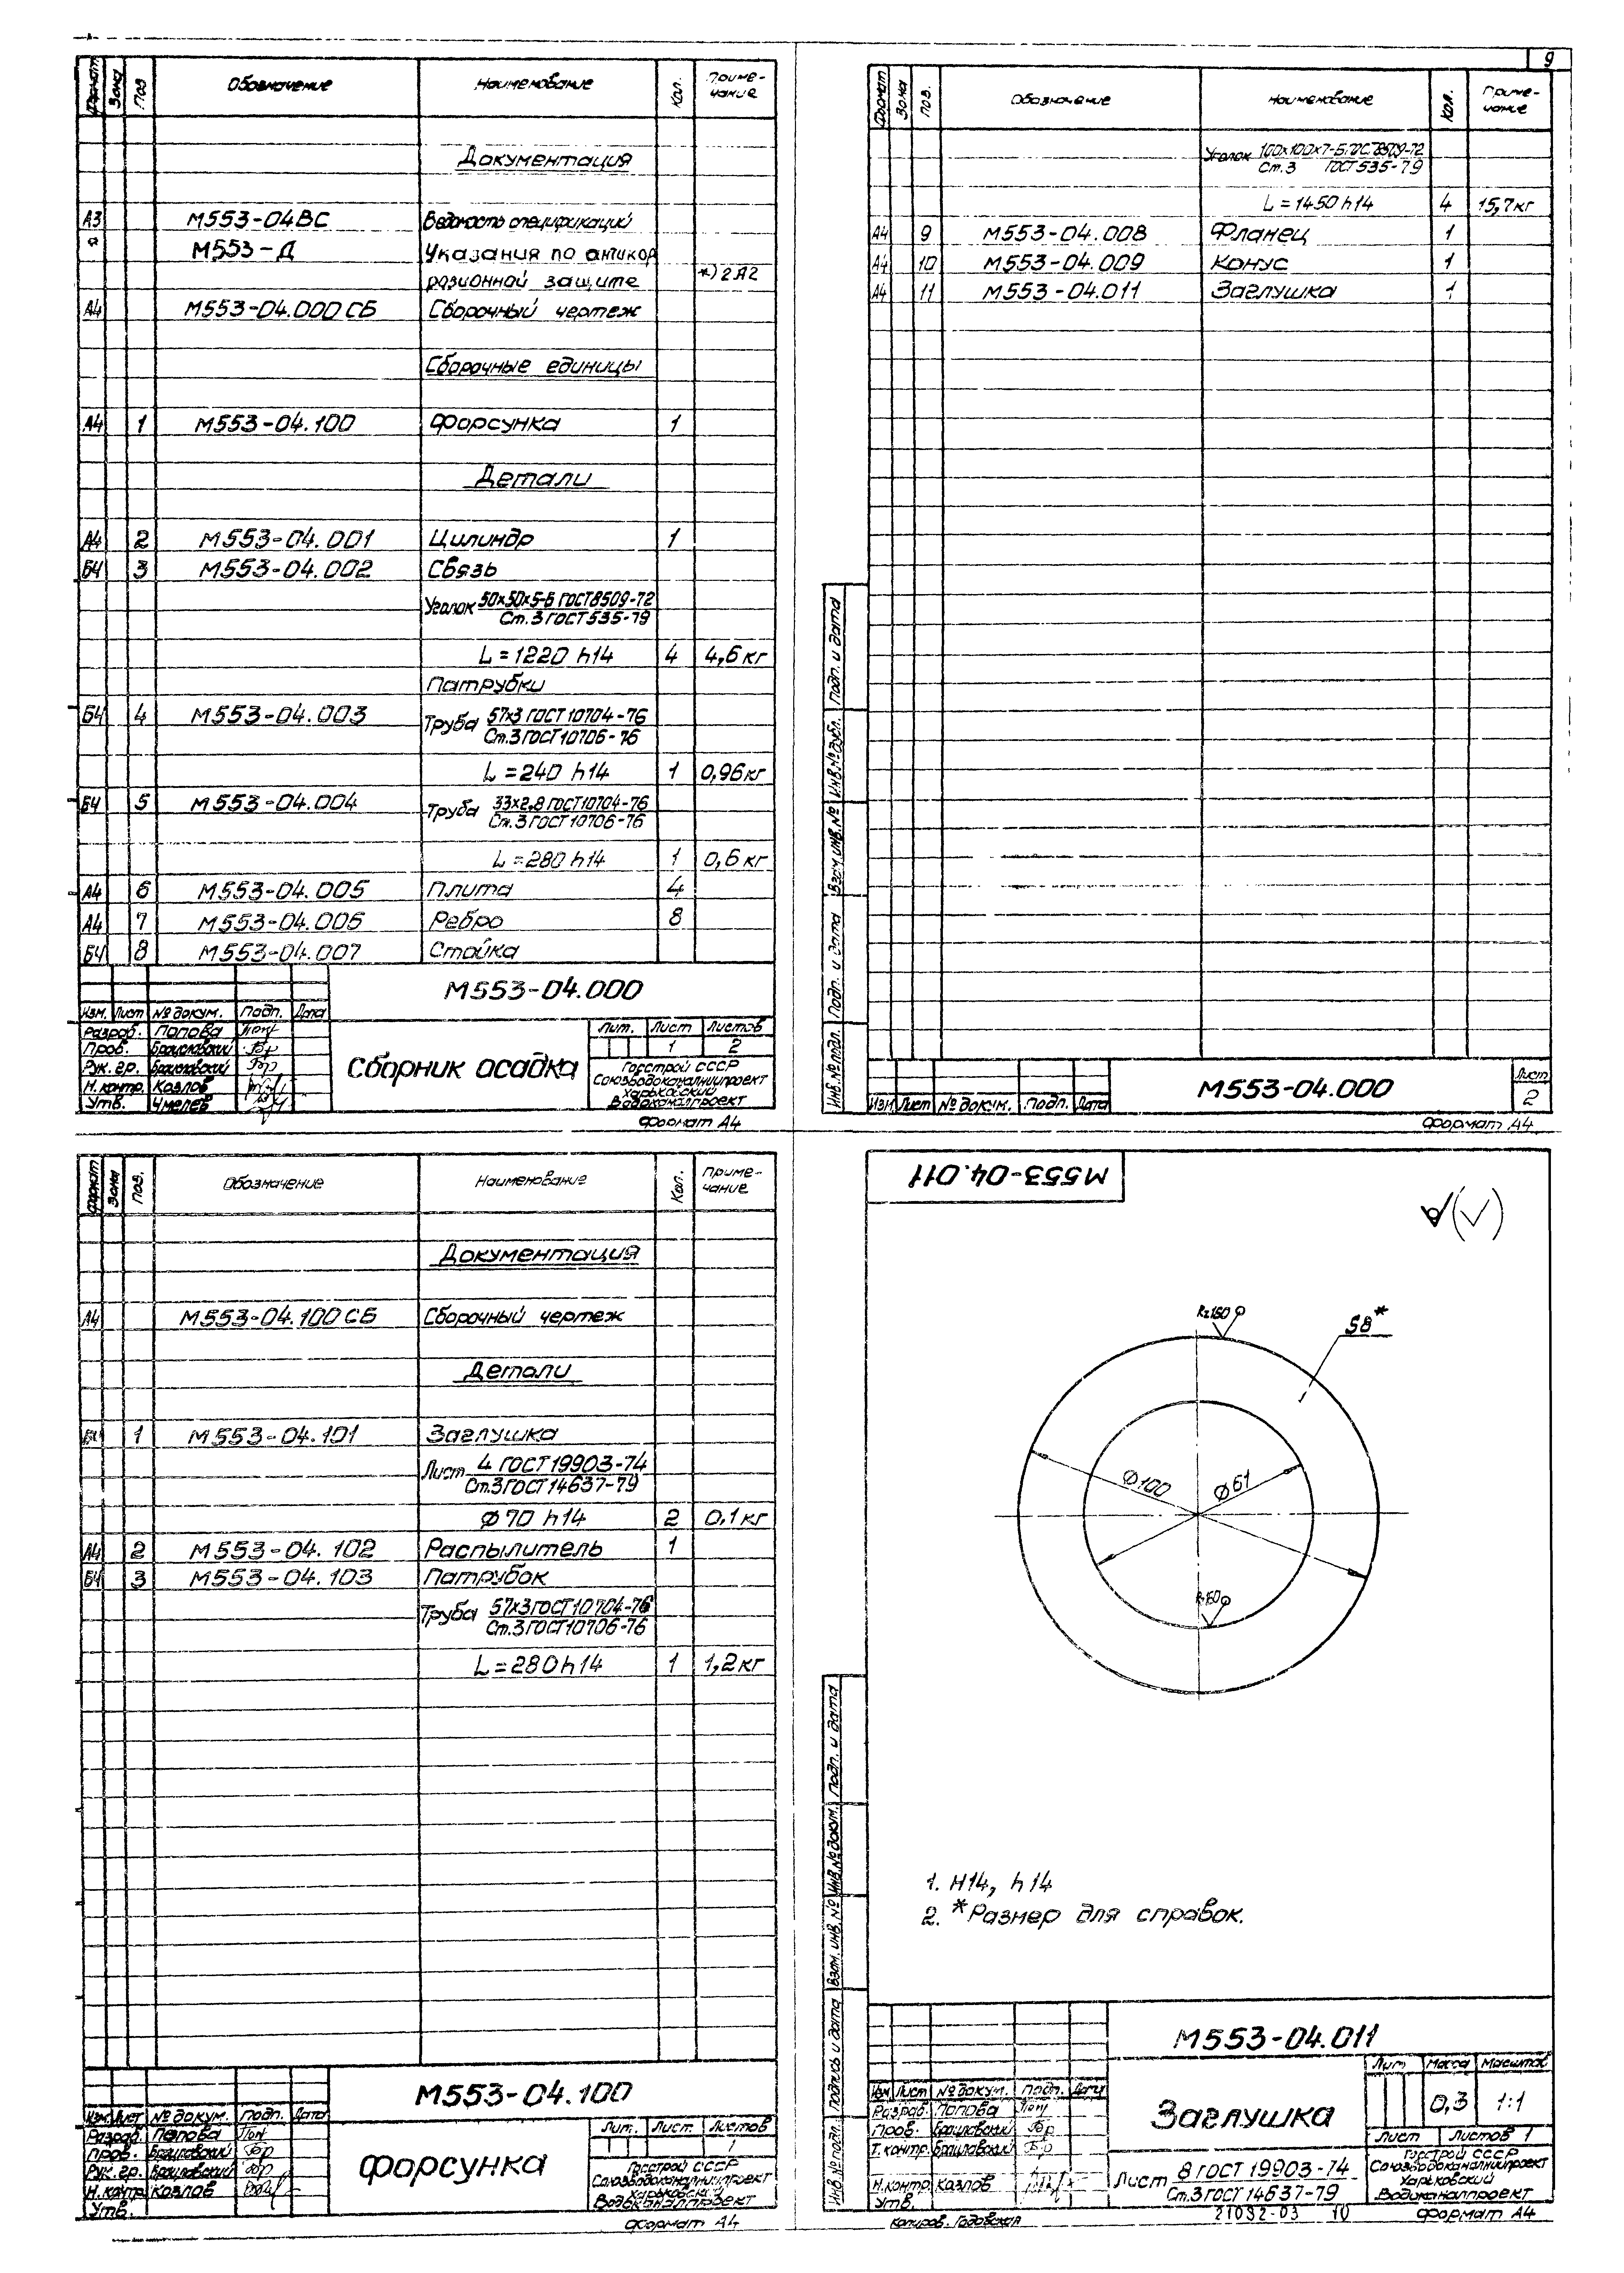 Формат Зона Поз Обозначение Наименование Кол. Приме-
чание
Документация
А3 М553-04ВС Ведомость спецификаций
М553-Д Указания по антикор
розионной защите *) 2А2
А4 М553-04.000 СБ Сборочный чертеж
Сборочные единицы
А4 1 М553-04.100 Форсунка 1
Детали
А4 2 М553-04.001 Цилиндр 1
Б4 3 М553-04.002 Связь
Уголок 50х50х5-Б ГОСТ 8509-72
Ст.3 ГОСТ 535-79
L=1220 h14 4 4,6 кг
Патрубки
Б4 4 М553-04.003 Труба 57х3 ГОСТ 10704-76
Ст.3 ГОСТ 10706-76
L=240 h14 1 0,96 кг
Б4 5 М553-04.004 Труба 33х2,8 ГОСТ 10704-76
Ст.3 ГОСТ 10706-76
L=280 h14 1 0,6 кг
А4 6 М553-04.005 Плита 4
А4 7 М553-04.006 Ребро 8
Б4 8 М553-04.007 Стойка
М553-04.000
Изм. Лист № докум. Подп. Дата
Разраб. Попова
Пров. Браиловский
Рук. гр. Браиловский
Н. контр. Козлов
Утв. Чмелев
Сборник осадка
Лит. Лист Листов
1 2
Госстрой СССР
Союзводоканалниипроект
Харьковский
Водоканалпроект
Формат А4
9
Формат Зона Поз. Обозначение Наименование Кол. Приме-
чание
Уголок 100х100х7-Б ГОСТ 8509-72
Ст.3 ГОСТ 535-79
L=1450 h14 4 15,7 кг
А4 9 М553-04.008 Фланец 1
А4 10 М553-04.009 Конус 1
А4 11 М553-04.011 Заглушка 1
Подп. и дата
Инв. № дубл.
Взам. инв. №
Подп. и дата
Инв. № подл.
Изм Лист № докум. Подп. Дата
М553-04.000
Лист
2
Формат А4
Формат Зона Поз. Обозначение Наименование Кол. Приме-
чание
Документация
А4 М553-04.100 СБ Сборочный чертеж
Детали
Б4 1 М553-04.101 Заглушка
Лист 4 ГОСТ 19903-74
Ст.3 ГОСТ 14637-79
Ø70 h14 2 0,1 кг
А4 2 М553-04.102 Распылитель 1
Б4 3 М553-04.103 Патрубок
Труба 57х3 ГОСТ 10704-76
Ст.3 ГОСТ 10706-76
L=280 h14 1 1,2 кг
М553-04.100
Изм. Лист № докум. Подп. Дата
Разраб. Попова
Пров. Браиловский
Рук. гр. Браиловский
Н. контр. Козлов
Утв.
Форсунка
Лит. Лист Листов
1
Госстрой СССР
Союзводоканалниипроект
Харьковский
Водоканалпроект
Формат А4
М553-04.011
Rz160
S8*
Ø100
Ø61
1. H14, h14
2. *Размер для справок.
Подп. и дата
Инв. № докум.
Взам. инв. №
Подпись и дата
Инв. № подл.
М553-04.011
Изм Лист № докум. Подп. Дата
Разраб. Попова
Пров. Браиловский
Т. контр. Браиловский
Н. контр. Козлов
Утв.
Заглушка
Лит Масса Масштаб
0,3 1:1
Лист Листов 1
Лист 8 ГОСТ 19903-74
Ст.3 ГОСТ 14637-79
Госстрой СССР
Союзводоканалниипроект
Харьковский
Водоканалпроект
Копиров. Годовская
21092-03 10
Формат А4